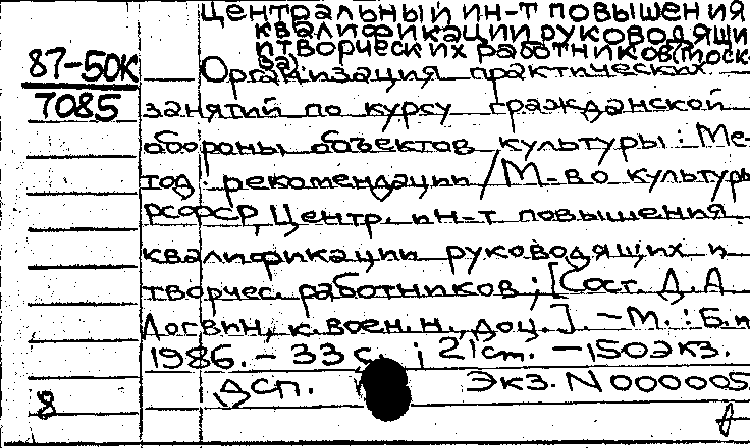 Центральный ин-т повышения
квалификации руководящи
и творческих работников (Моск-
ва).
87-50К
7085
Организация практических
занятий по курсу гражданской
обороны объектов культуры: Ме-
тод. рекомендации / М-во культуры
РСФСР, Центр. ин-т повышения
квалификации руководящих и
творчес. работников; [Сост. Д.А
Логвин, к. воен. н., доц.]. - М.: Б.и
1986. - 33 с. ; 21 см. - 150 экз.
ДСП. Экз. N 000005
8